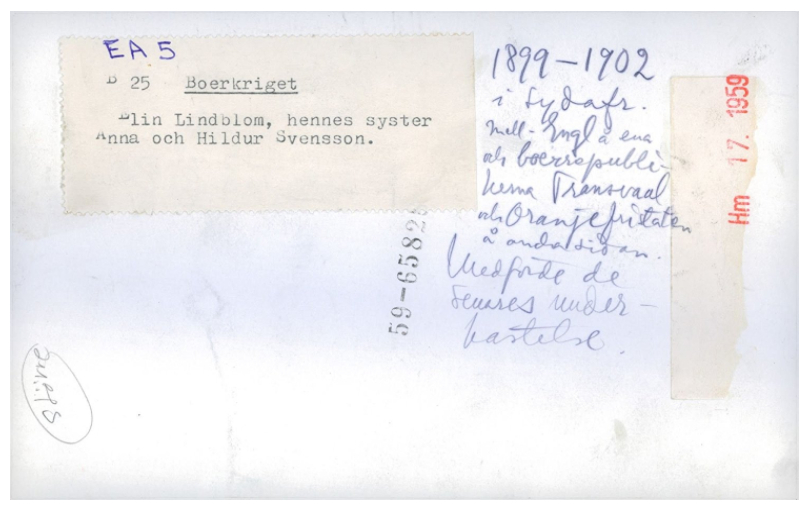 EA 5
D 25 Boerkriget
Elin Lindblom, hennes syster
Anna och Hildur Svensson.
1899-1902
i Sydafr.
mell. Engl å ena
och boerrepubli-
kerna Transvaal
och Oranjefristaten
å andra sidan.
Medförde de
senares under-
kastelse.
Hm 17. 1959
59-6582